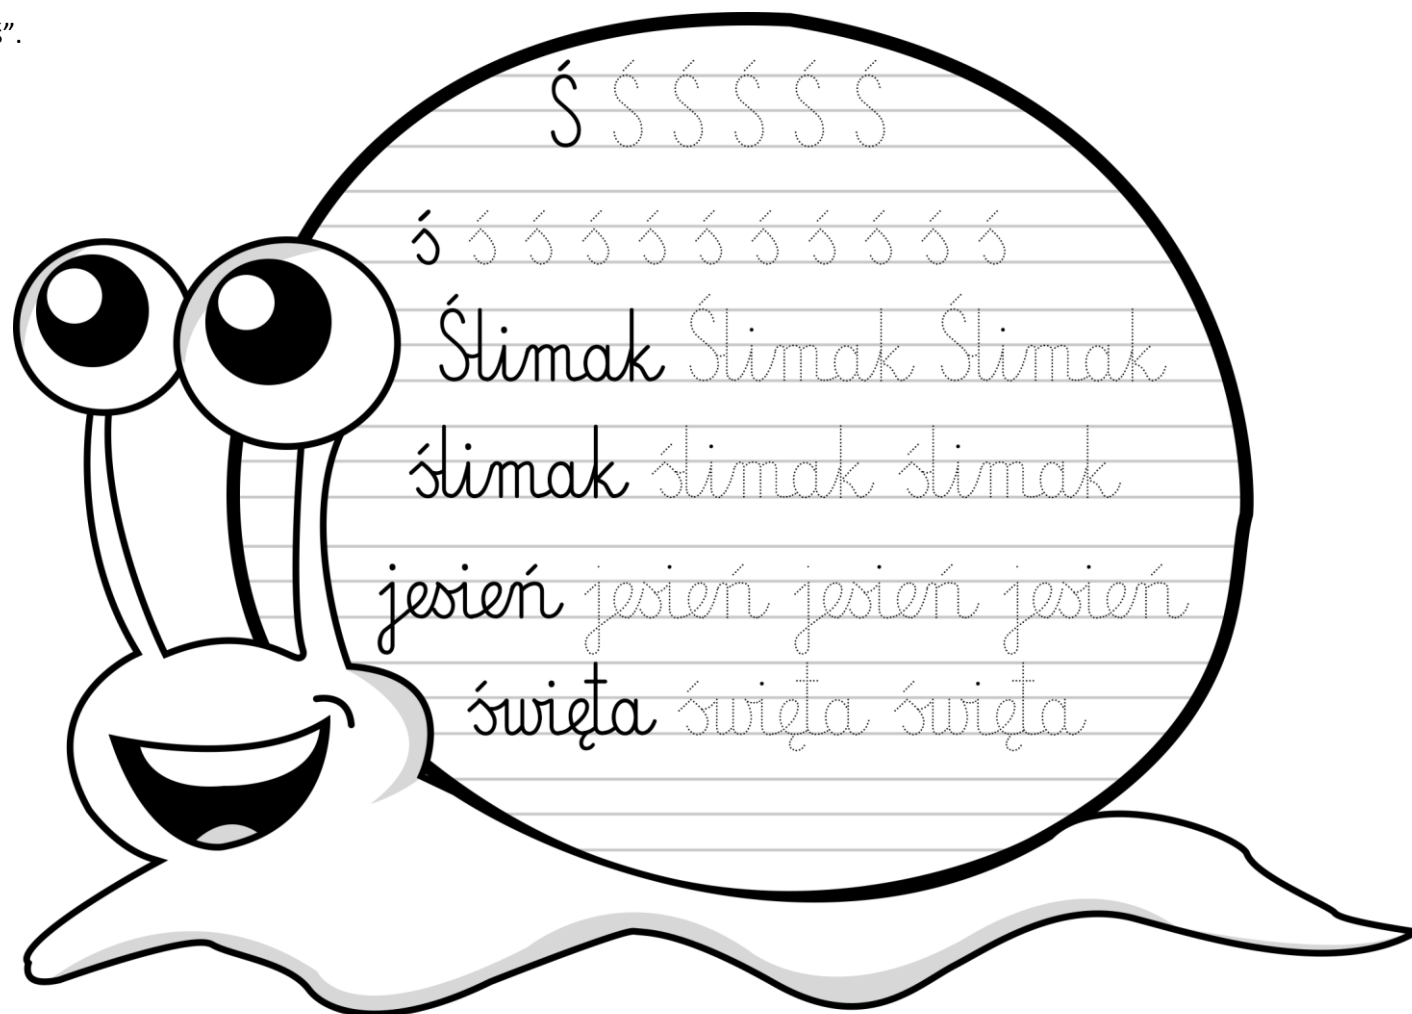 ś”.
Ś Ś Ś Ś Ś Ś
ś ś ś ś ś ś ś ś ś ś ś
Ślimak Ślimak Ślimak
ślimak ślimak ślimak
jesień jesień jesień jesień
święta święta święta